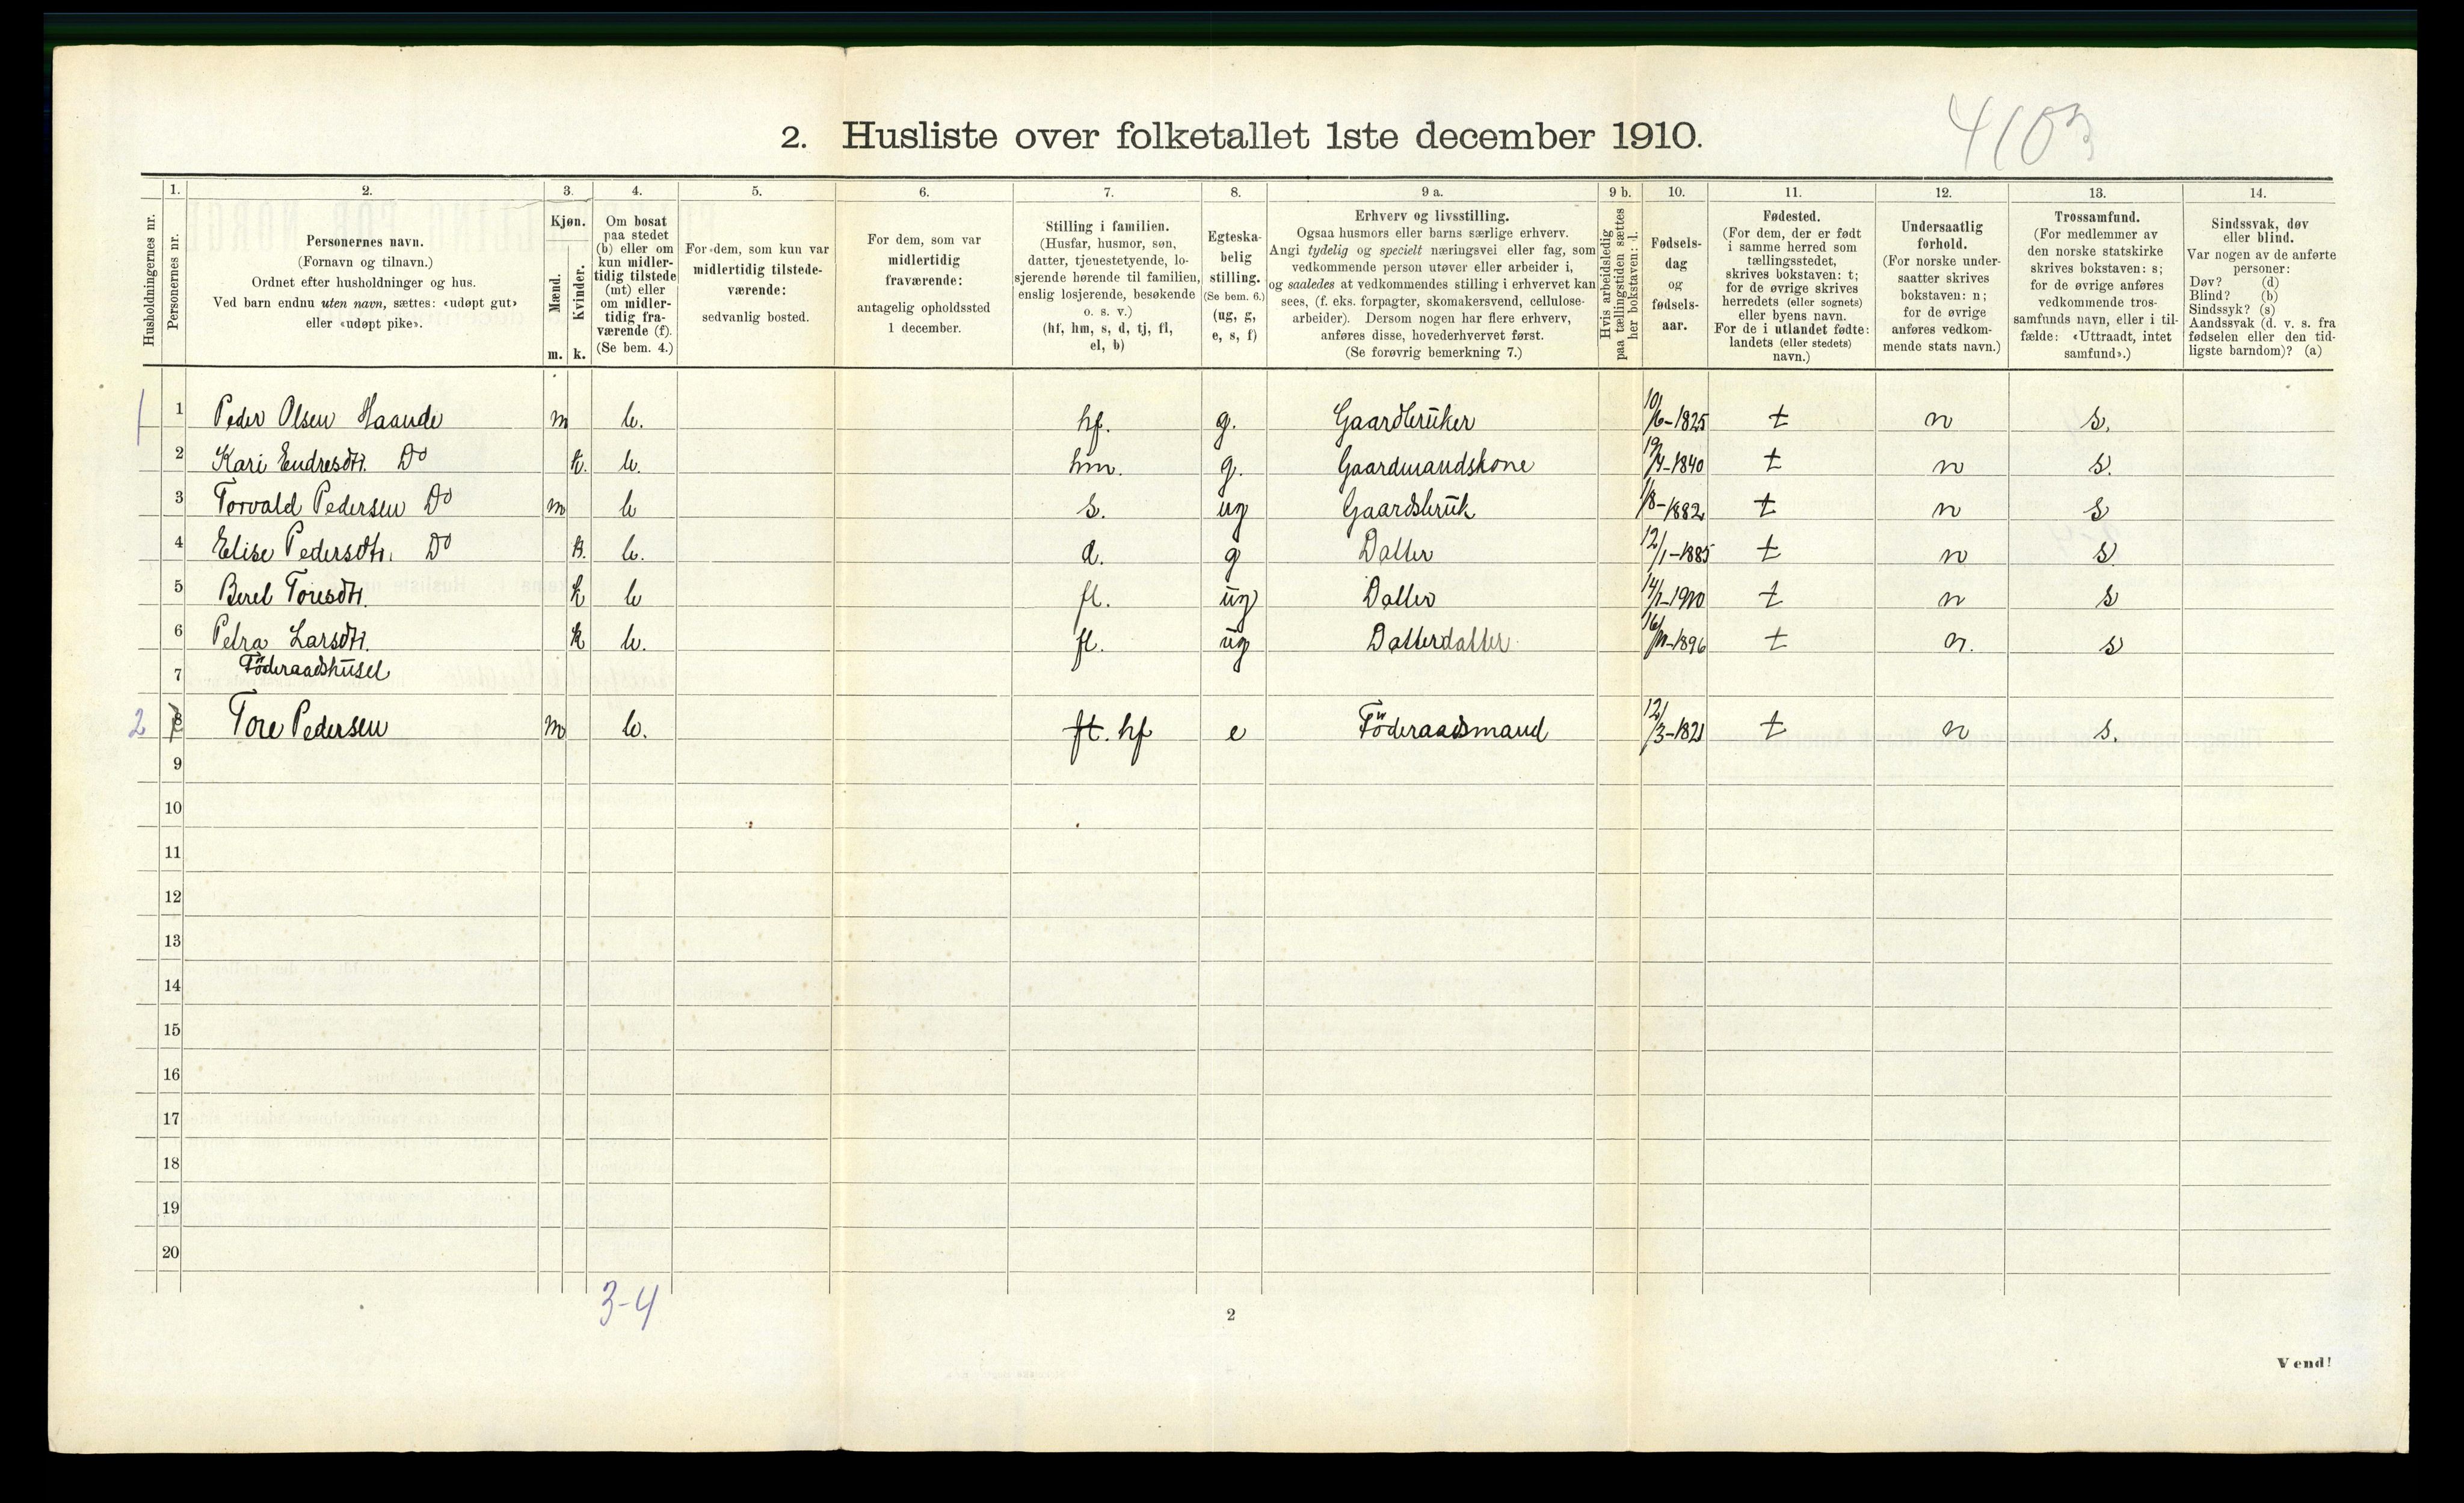 2. Husliste over folketallet 1ste december 1910.
4103
1. 2. 3. 4. 5. 6. 7. 8. 9 a. 9 b. 10. 11. 12. 13. 14.
Husholdningernes nr.
Personernes nr.
Personernes navn.
(Fornavn og tilnavn.)
Ordnet efter husholdninger og hus.
Ved barn endnu uten navn, sættes: «udøpt gut»
eller «udøpt pike».
Kjøn.
Mænd.
Kvinder.
m. k.
Om bosat
paa stedet
(b) eller om
kun midler-
tidig tilstede
(mt) eller
om midler-
tidig fra-
værende (f).
(Se bem. 4.)
For dem, som kun var
midlertidig tilstede-
værende:
sedvanlig bosted.
For dem, som var
midlertidig
fraværende:
antagelig opholdssted
1 december.
Stilling i familien.
(Husfar, husmor, søn,
datter, tjenestetyende, lo-
sjerende hørende til familien,
enslig losjerende, besøkende
o. s. v.)
(hf, hm, s, d, tj, fl,
el, b)
Egteska-
belig
stilling.
(Se bem. 6.)
(ug, g,
e, s, f)
Erhverv og livsstilling.
Ogsaa husmors eller barns særlige erhverv.
Angi tydelig og specielt næringsvei eller fag, som
vedkommende person utøver eller arbeider i,
og saaledes at vedkommendes stilling i erhvervet kan
sees, (f. eks. forpagter, skomakersvend, cellulose-
arbeider). Dersom nogen har flere erhverv,
anføres disse, hovederhvervet først.
(Se forøvrig bemerkning 7.)
Hvis arbeidsledig
paa tællingstiden sættes
her bokstaven: l.
Fødsels-
dag
og
fødsels-
aar.
Fødested.
(For dem, der er født
i samme herred som
tællingsstedet,
skrives bokstaven: t;
for de øvrige skrives
herredets (eller sognets)
eller byens navn.
For de i utlandet fødte:
landets (eller stedets)
navn.)
Undersaatlig
forhold.
(For norske under-
saatter skrives
bokstaven: n;
for de øvrige
anføres vedkom-
mende stats navn.)
Trossamfund.
(For medlemmer av
den norske statskirke
skrives bokstaven: s;
for de øvrige anføres
vedkommende tros-
samfunds navn, eller i til-
fælde: «Uttraadt, intet
samfund».)
Sindssvak, døv
eller blind.
Var nogen av de anførte
personer:
Døv? (d)
Blind? (b)
Sindssyk? (s)
Aandssvak (d. v. s. fra
fødselen eller den tid-
ligste barndom)? (a)
1 1 Peder Olsen Haande m b. hf. g. Gaardbruker 10/6-1825 t n s.
2 Kari Endresdtr. Do k. b. hm. g. Gaardmandskone 19/4-1840 t n s.
3 Torvald Pedersen Do m b s. ug Gaardsbruk 1/8-1882 t n s
4 Elise Pedersdtr. Do k. b. d. g Datter 12/1-1885 t n s
5 Beret Toresdtr. k b fl. ug Datter 14/1-1910 t n s
6 Petra Larsdtr. k b. fl. ug Datterdatter 16/11-1896 t n. s
7 Föderaadshuset
2 8 Tore Pedersen m b. ft. hf e Föderaadsmand 12/3-1821 t n s.
9
10
11
12
13
14
15
16
17
18
19
20
3-4
2
Vend!